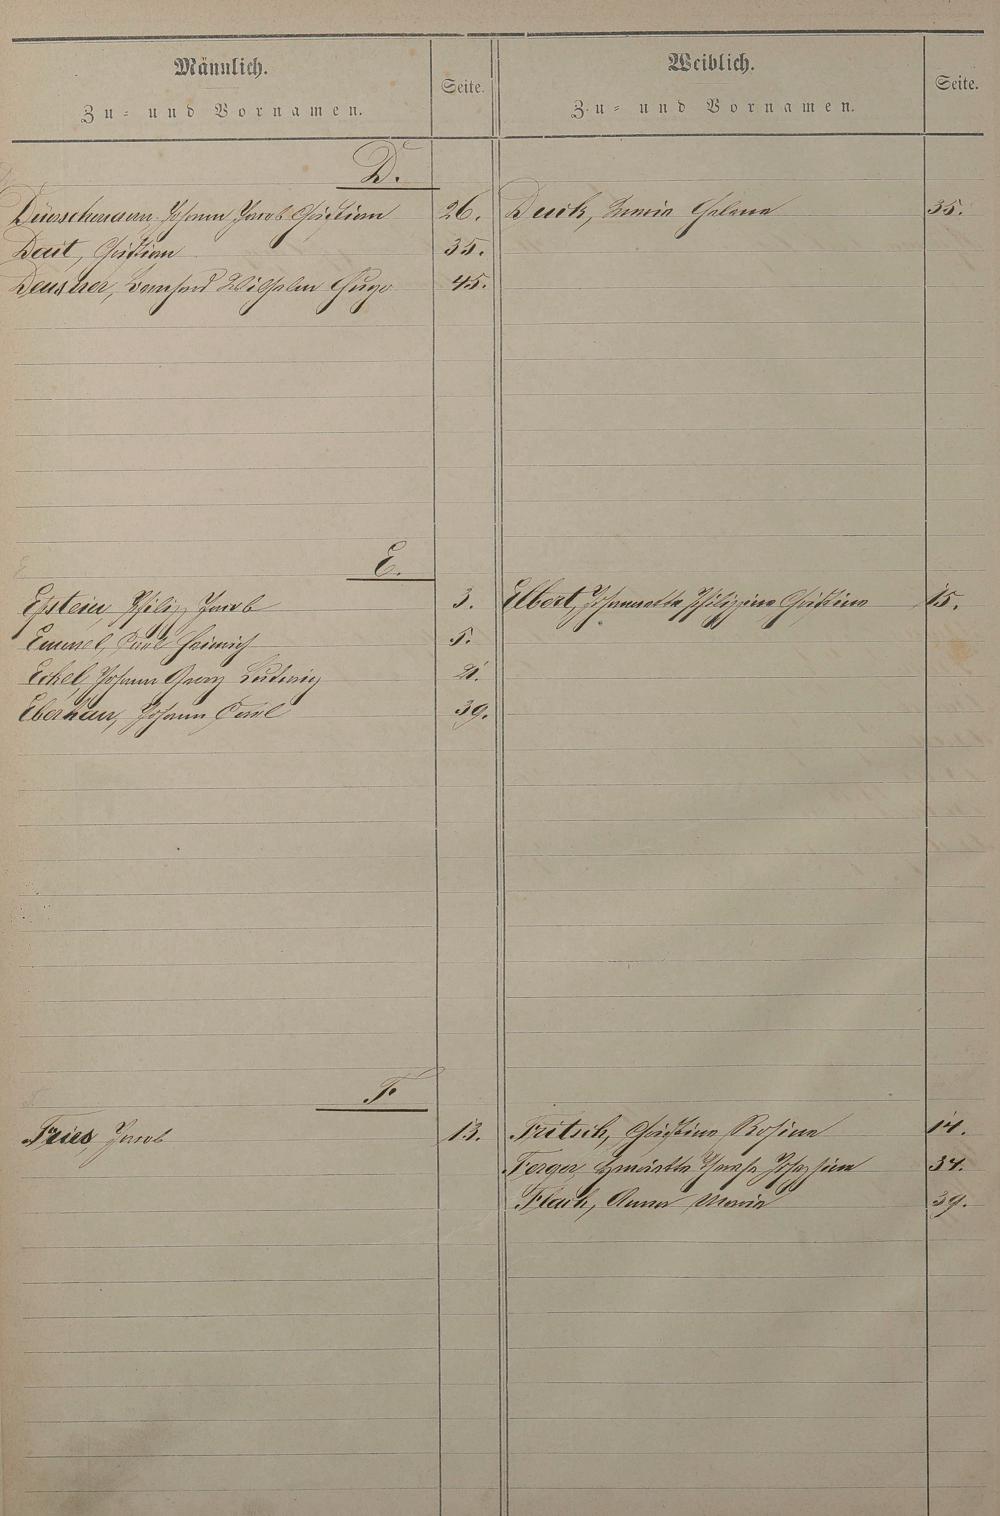 Männlich.
Zu- und Vornamen.
Seite.
Weiblich.
Zu- und Vornamen.
Seite.
D.
Johann Jacob Christian 26.
Christian 35.
Deusner, Bernhard Wilhelm Hugo 45.
Maria Helena 35.
E.
Epstein, Philipp Jacob 3.
Emmel, Carl Heinrich 5.
Eckel, Johann Georg Ludwig 21.
Johann Carl 39.
Elbert, Johannetta Philippina Christina 15.
F
Fries, Jacob 13.
Fritsch, Christina Rosina 14.
Ferger, Josephine 34.
Flach, Anna Maria 39.